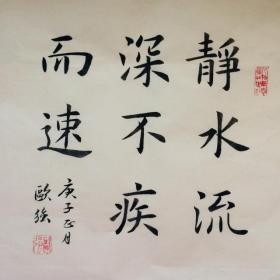 靜水流
深不疾
而速
庚子正月
歐強